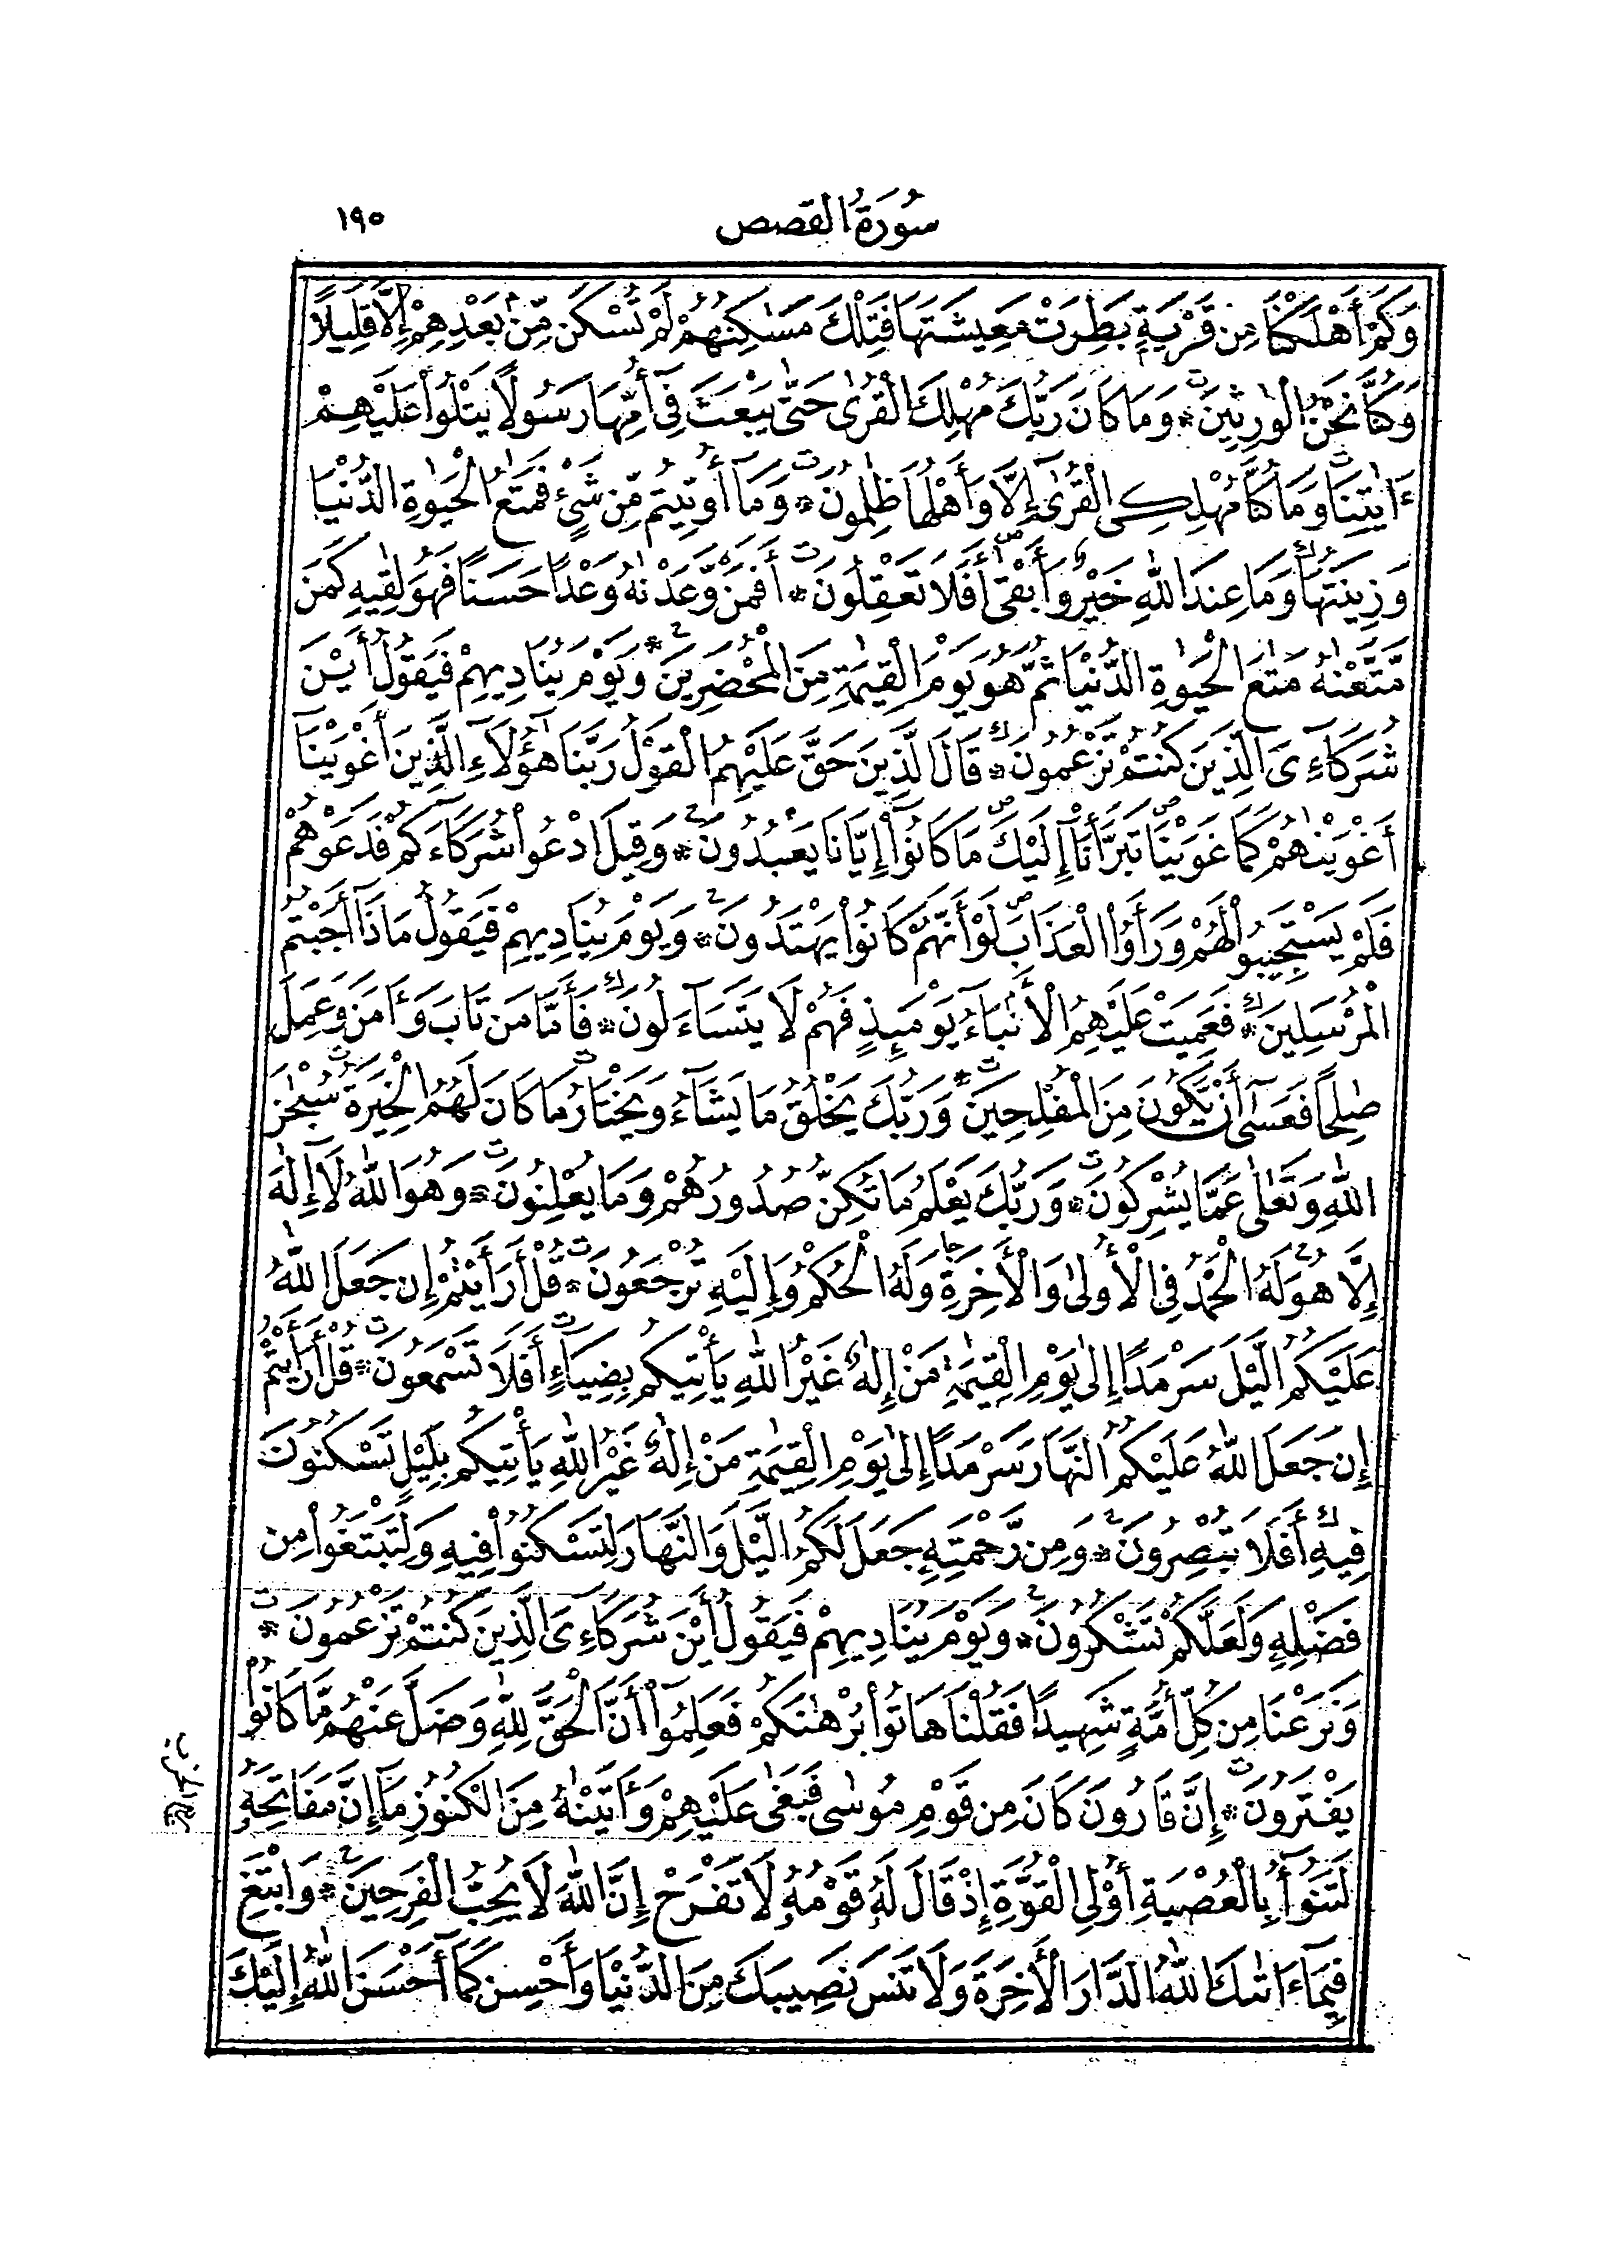 سُورَةُ الْقَصَص ١٩٥
وَكَمْ أَهْلَكْنَا مِن قَرْيَةٍۭ بَطِرَتْ مَعِيشَتَهَا فَتِلْكَ مَسَٰكِنُهُمْ لَمْ تُسْكَن مِّنۢ بَعْدِهِمْ إِلَّا قَلِيلًا
وَكُنَّا نَحْنُ الْوَٰرِثِينَ * وَمَا كَانَ رَبُّكَ مُهْلِكَ الْقُرَىٰ حَتَّىٰ يَبْعَثَ فِىٓ أُمِّهَا رَسُولًا يَتْلُوا۟ عَلَيْهِمْ
ءَايَٰتِنَا وَمَا كُنَّا مُهْلِكِى الْقُرَىٰٓ إِلَّا وَأَهْلُهَا ظَٰلِمُونَ * وَمَآ أُوتِيتُم مِّن شَىْءٍ فَمَتَٰعُ الْحَيَوٰةِ الدُّنْيَا
وَزِينَتُهَا وَمَا عِندَ اللَّهِ خَيْرٌ وَأَبْقَىٰٓ أَفَلَا تَعْقِلُونَ * أَفَمَن وَّعَدْنَٰهُ وَعْدًا حَسَنًا فَهُوَ لَٰقِيهِ كَمَن
مَّتَّعْنَٰهُ مَتَٰعَ الْحَيَوٰةِ الدُّنْيَا ثُمَّ هُوَ يَوْمَ الْقِيَٰمَةِ مِنَ الْمُحْضَرِينَ * وَيَوْمَ يُنَادِيهِمْ فَيَقُولُ أَيْنَ
شُرَكَآءِىَ الَّذِينَ كُنتُمْ تَزْعُمُونَ * قَالَ الَّذِينَ حَقَّ عَلَيْهِمُ الْقَوْلُ رَبَّنَا هَٰٓؤُلَآءِ الَّذِينَ أَغْوَيْنَآ
أَغْوَيْنَٰهُمْ كَمَا غَوَيْنَا تَبَرَّأْنَآ إِلَيْكَ مَا كَانُوٓا۟ إِيَّانَا يَعْبُدُونَ * وَقِيلَ ادْعُوا۟ شُرَكَآءَكُمْ فَدَعَوْهُمْ
فَلَمْ يَسْتَجِيبُوا۟ لَهُمْ وَرَأَوُا۟ الْعَذَابَ لَوْ أَنَّهُمْ كَانُوا۟ يَهْتَدُونَ * وَيَوْمَ يُنَادِيهِمْ فَيَقُولُ مَاذَآ أَجَبْتُمُ
الْمُرْسَلِينَ * فَعَمِيَتْ عَلَيْهِمُ الْأَنۢبَآءُ يَوْمَئِذٍ فَهُمْ لَا يَتَسَآءَلُونَ * فَأَمَّا مَن تَابَ وَءَامَنَ وَعَمِلَ
صَٰلِحًا فَعَسَىٰٓ أَن يَكُونَ مِنَ الْمُفْلِحِينَ * وَرَبُّكَ يَخْلُقُ مَا يَشَآءُ وَيَخْتَارُ مَا كَانَ لَهُمُ الْخِيَرَةُ سُبْحَٰنَ
اللَّهِ وَتَعَٰلَىٰ عَمَّا يُشْرِكُونَ * وَرَبُّكَ يَعْلَمُ مَا تُكِنُّ صُدُورُهُمْ وَمَا يُعْلِنُونَ * وَهُوَ اللَّهُ لَآ إِلَٰهَ
إِلَّا هُوَ لَهُ الْحَمْدُ فِى الْأُولَىٰ وَالْأَخِرَةِ وَلَهُ الْحُكْمُ وَإِلَيْهِ تُرْجَعُونَ * قُلْ أَرَءَيْتُمْ إِن جَعَلَ اللَّهُ
عَلَيْكُمُ الَّيْلَ سَرْمَدًا إِلَىٰ يَوْمِ الْقِيَٰمَةِ مَنْ إِلَٰهٌ غَيْرُ اللَّهِ يَأْتِيكُم بِضِيَآءٍ أَفَلَا تَسْمَعُونَ * قُلْ أَرَءَيْتُمْ
إِن جَعَلَ اللَّهُ عَلَيْكُمُ النَّهَارَ سَرْمَدًا إِلَىٰ يَوْمِ الْقِيَٰمَةِ مَنْ إِلَٰهٌ غَيْرُ اللَّهِ يَأْتِيكُم بِلَيْلٍ تَسْكُنُونَ
فِيهِ أَفَلَا تُبْصِرُونَ * وَمِن رَّحْمَتِهِ جَعَلَ لَكُمُ الَّيْلَ وَالنَّهَارَ لِتَسْكُنُوا۟ فِيهِ وَلِتَبْتَغُوا۟ مِن
فَضْلِهِ وَلَعَلَّكُمْ تَشْكُرُونَ * وَيَوْمَ يُنَادِيهِمْ فَيَقُولُ أَيْنَ شُرَكَآءِىَ الَّذِينَ كُنتُمْ تَزْعُمُونَ *
وَنَزَعْنَا مِن كُلِّ أُمَّةٍ شَهِيدًا فَقُلْنَا هَاتُوا۟ بُرْهَٰنَكُمْ فَعَلِمُوٓا۟ أَنَّ الْحَقَّ لِلَّهِ وَضَلَّ عَنْهُم مَّا كَانُوا۟
يَفْتَرُونَ * إِنَّ قَارُونَ كَانَ مِن قَوْمِ مُوسَىٰ فَبَغَىٰ عَلَيْهِمْ وَءَاتَيْنَٰهُ مِنَ الْكُنُوزِ مَآ إِنَّ مَفَاتِحَهُ
لَتَنُوٓأُ بِالْعُصْبَةِ أُو۟لِى الْقُوَّةِ إِذْ قَالَ لَهُ قَوْمُهُ لَا تَفْرَحْ إِنَّ اللَّهَ لَا يُحِبُّ الْفَرِحِينَ * وَابْتَغِ
فِيمَآ ءَاتَىٰكَ اللَّهُ الدَّارَ الْأَخِرَةَ وَلَا تَنسَ نَصِيبَكَ مِنَ الدُّنْيَا وَأَحْسِن كَمَآ أَحْسَنَ اللَّهُ إِلَيْكَ